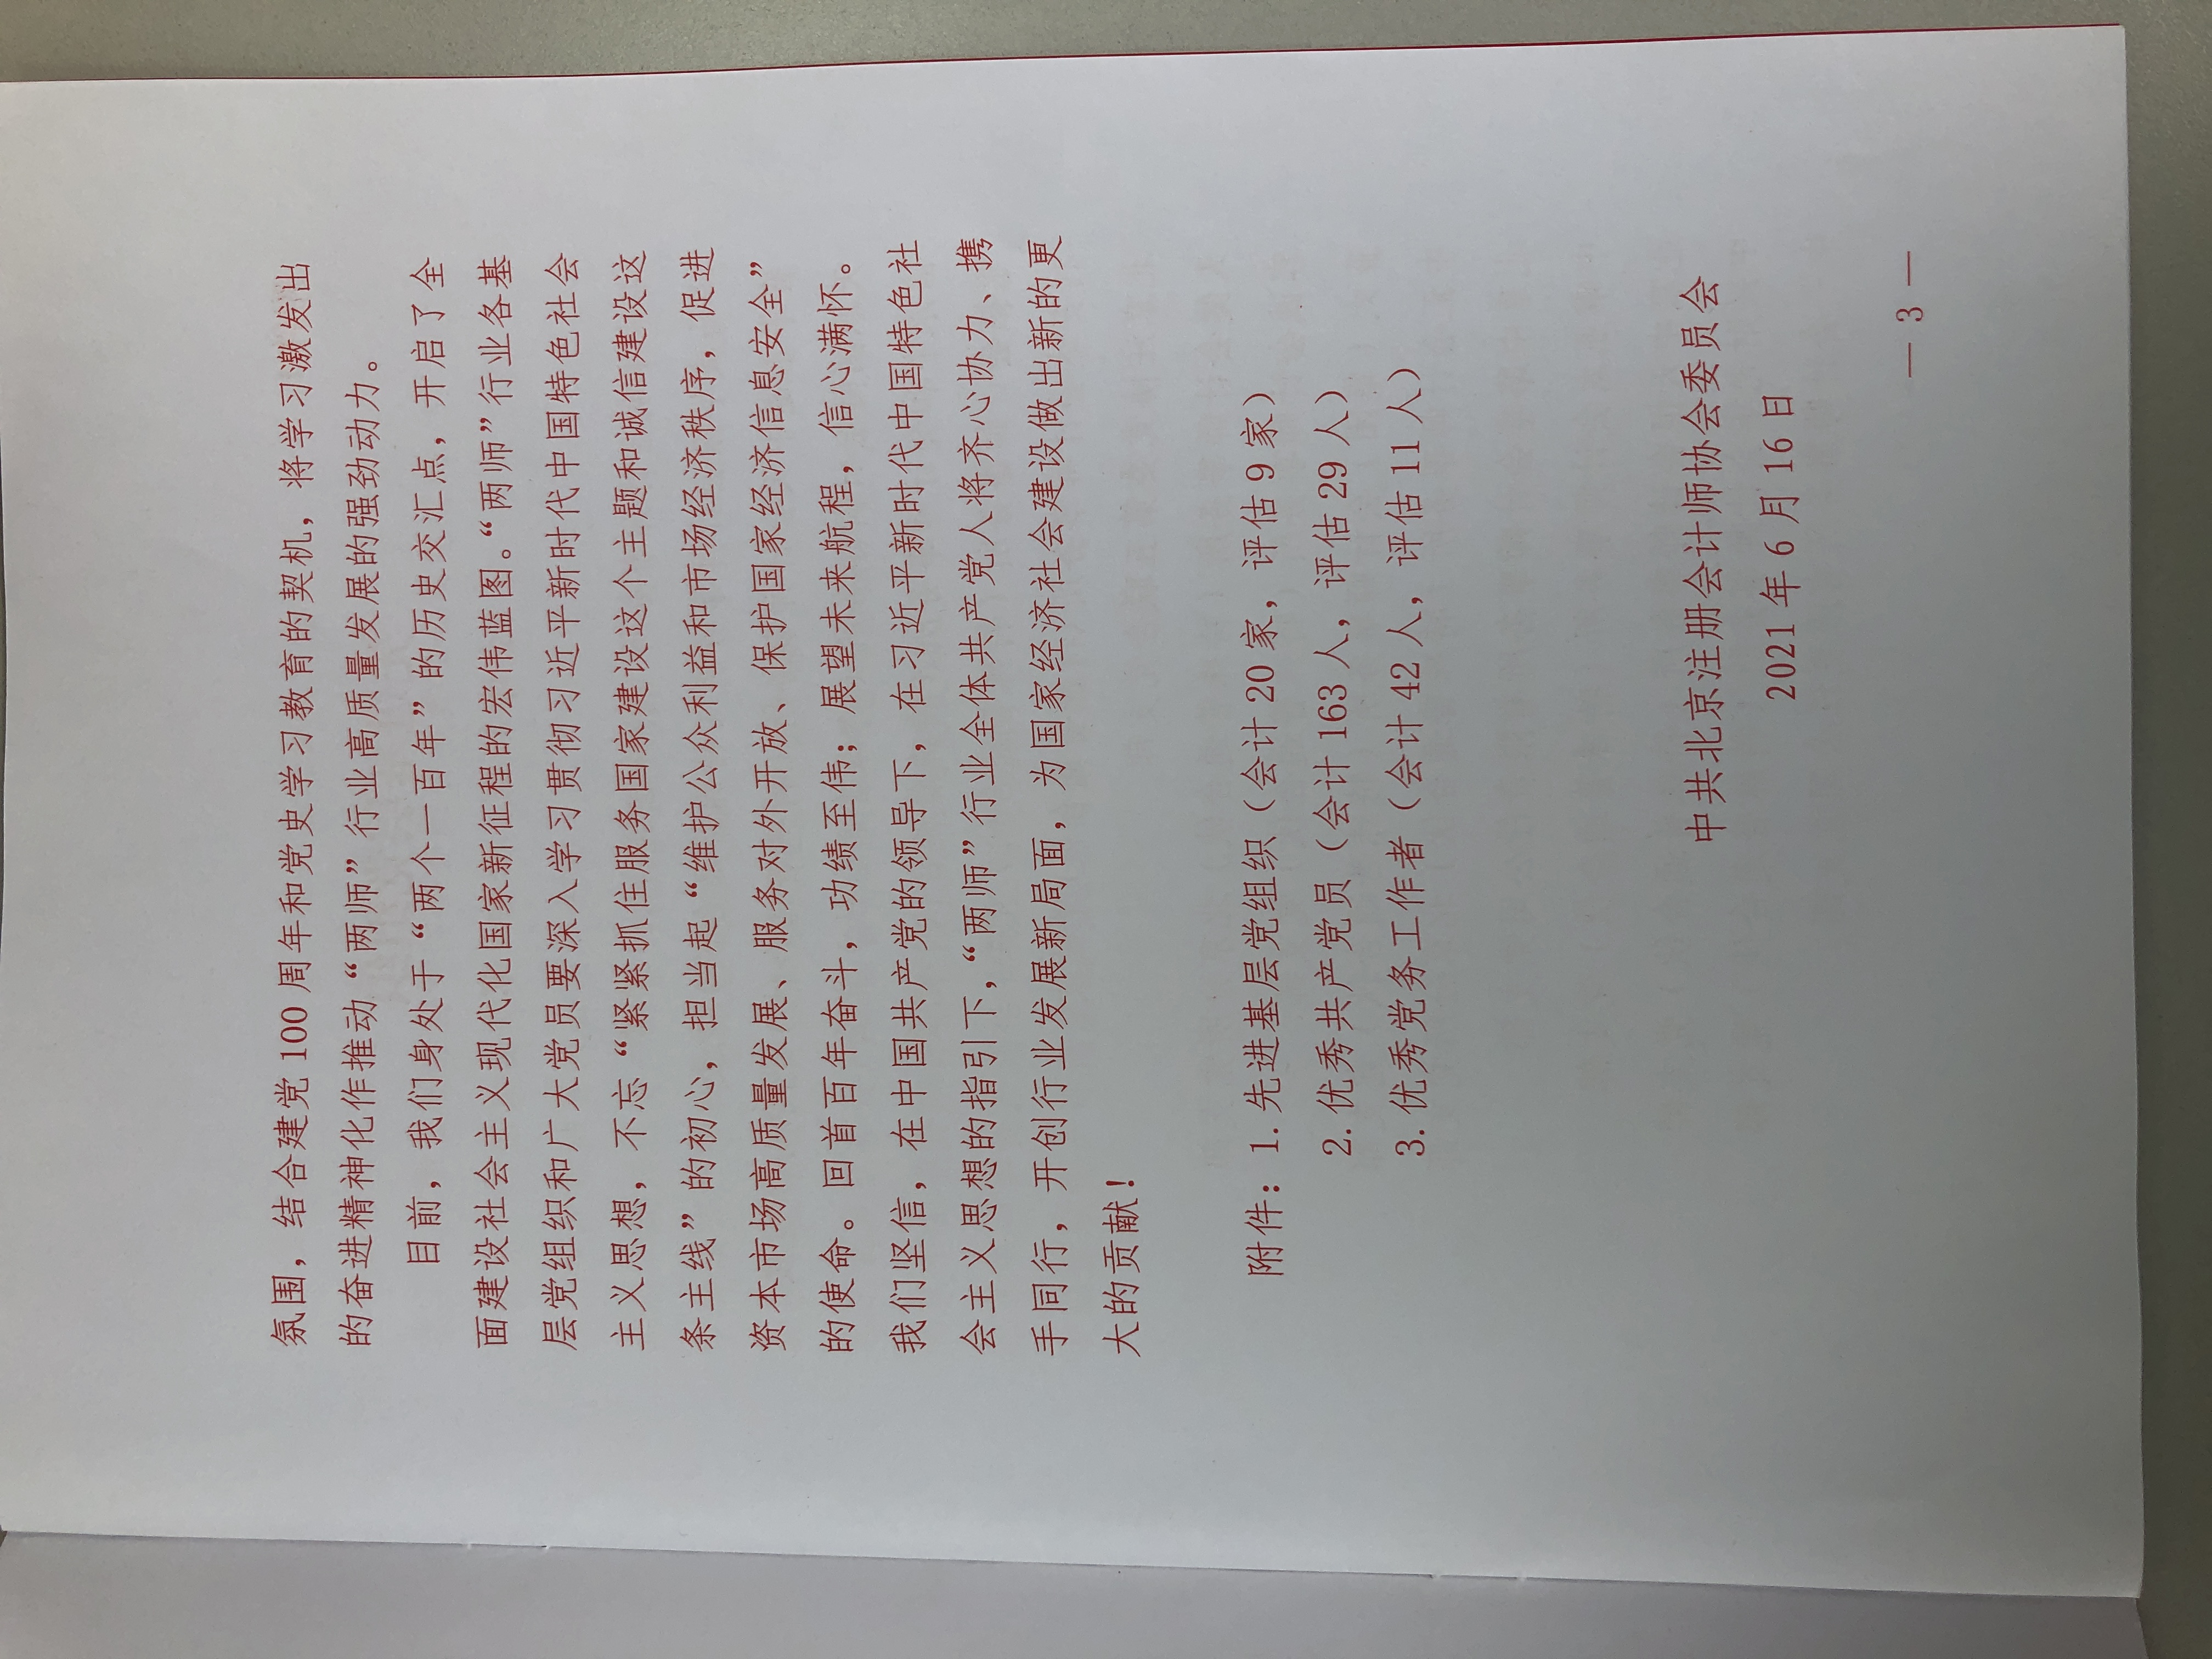 氛围，结合建党 100 周年和党史学习教育的契机，将学习激发出
的奋进精神化作推动“两师”行业高质量发展的强劲动力。
目前，我们身处于“两个一百年”的历史交汇点，开启了全
面建设社会主义现代化国家新征程的宏伟蓝图。“两师”行业各基
层党组织和广大党员要深入学习贯彻习近平新时代中国特色社会
主义思想，不忘“紧紧抓住服务国家建设这个主题和诚信建设这
条主线”的初心，担当起“维护公众利益和市场经济秩序，促进
资本市场高质量发展、服务对外开放、保护国家经济信息安全”
的使命。回首百年奋斗，功绩至伟；展望未来航程，信心满怀。
我们坚信，在中国共产党的领导下，在习近平新时代中国特色社
会主义思想的指引下，“两师”行业全体共产党人将齐心协力、携
手同行，开创行业发展新局面，为国家经济社会建设做出新的更
大的贡献！
附件：1. 先进基层党组织（会计 20 家，评估 9 家）
2. 优秀共产党员（会计 163 人，评估 29 人）
3. 优秀党务工作者（会计 42 人，评估 11 人）
中共北京注册会计师协会委员会
2021 年 6 月 16 日
— 3 —